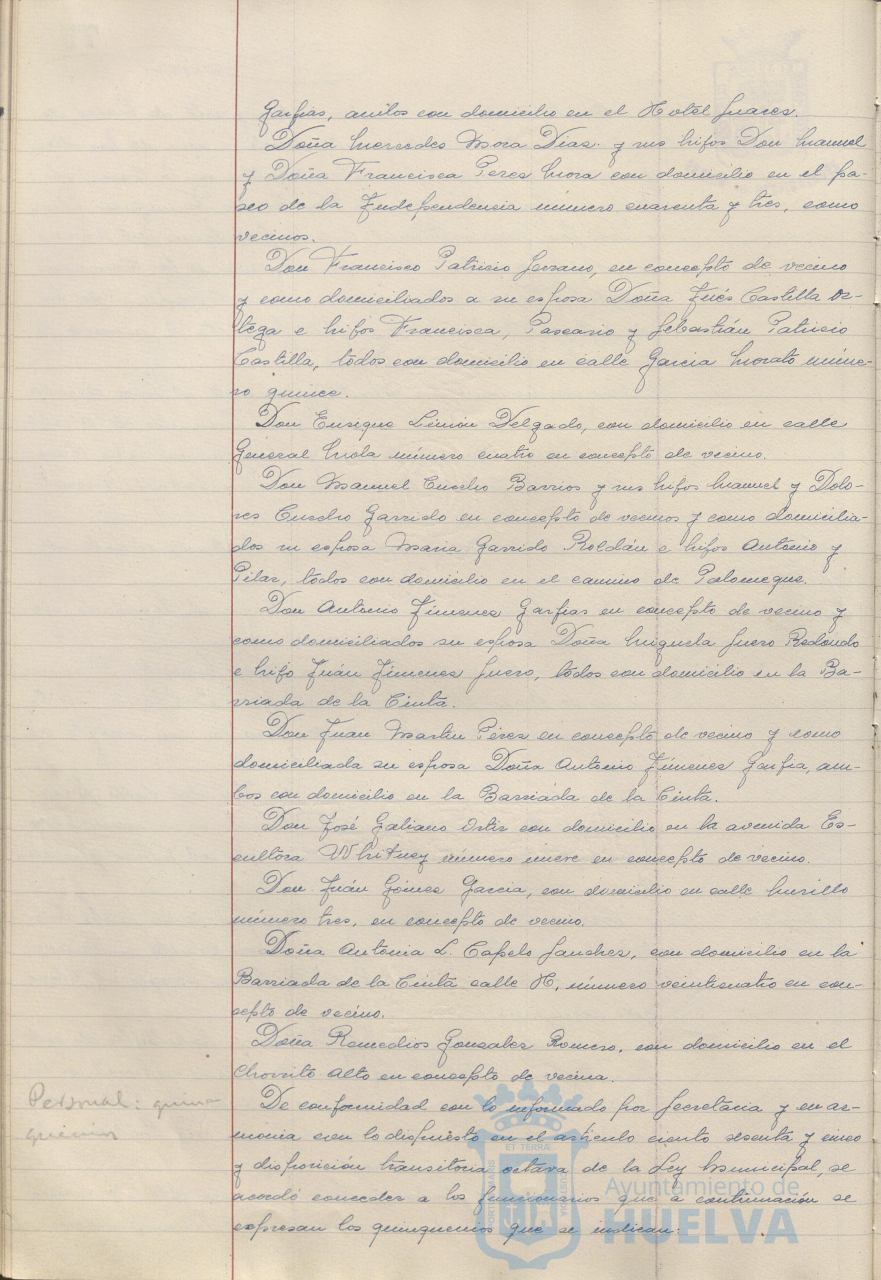 Garfias, ambos con domicilio en el Hotel Suarez.
Doña Mercedes Mora Dias y sus hijos Don Manuel
y Doña Francisca Perez Mora con domicilio en el pa-
seo de la Independencia número cuarenta y tres, como
vecinos.
Don Francisco Patricio Lozano, en concepto de vecino
y como domiciliados a su esposa Doña Inés Castilla Or-
tega e hijos Francisca, Pascasio y Sebastián Patricio
Castilla, todos con domicilio en calle Garcia Morato núme-
ro quince.
Don Enrique Limón Delgado, con domicilio en calle
General Mola número cuatro en concepto de vecino.
Don Manuel Cuadro Barrios y sus hijos Manuel y Dolo-
res Cuadro Garrido en concepto de vecinos y como domicilia-
dos su esposa Maria Garrido Roldán e hijos Antonio y
Pilar, todos con domicilio en el camino de Palomeque.
Don Antonio Jimenez Garfias en concepto de vecino y
como domiciliados su esposa Doña Miguela Suero Redondo
e hijo Juán Jimenez Suero, todos con domicilio en la Ba-
rriada de la Cinta.
Don Juan Martin Pérez en concepto de vecino y como
domiciliada su esposa Doña Antonio Jimenez Garfia, am-
bos con domicilio en la Barriada de la Cinta.
Don José Galiano Ortiz con domicilio en la avenida Es-
cultora Whitney número nueve en concepto de vecino.
Don Juán Gómez Garcia, con domicilio en calle Murillo
número tres, en concepto de vecino.
Doña Antonia L. Capelo Sanchez, con domicilio en la
Barriada de la Cinta calle H, número veinticuatro en con-
cepto de vecino.
Doña Remedios Gonzalez Romero, con domicilio en el
Chorrito Alto en concepto de vecina.
Personal: quin-
quenios
De conformidad con lo informado por Secretaria y en ar-
monia con lo dispuesto en el articulo ciento sesenta y cinco
y disposición transitoria octava de la Ley Municipal, se
acordó conceder a los funcionarios que a continuación se
expresan los quinquenios que se indican:
Ayuntamiento de
HUELVA